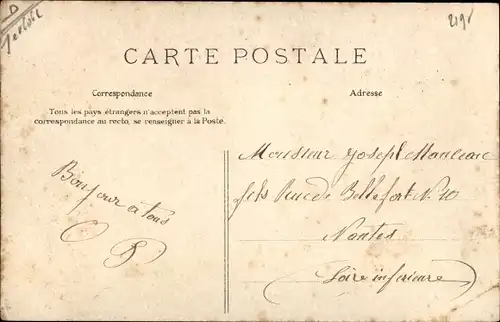 CARTE POSTALE
Correspondance
Adresse
Tous les pays étrangers n'acceptent pas la
correspondance au recto, se renseigner à la Poste.
Bonjour à tous
Monsieur Joseph
fils Rue de Bellefort No 10
Nantes
(Loire inferieure)